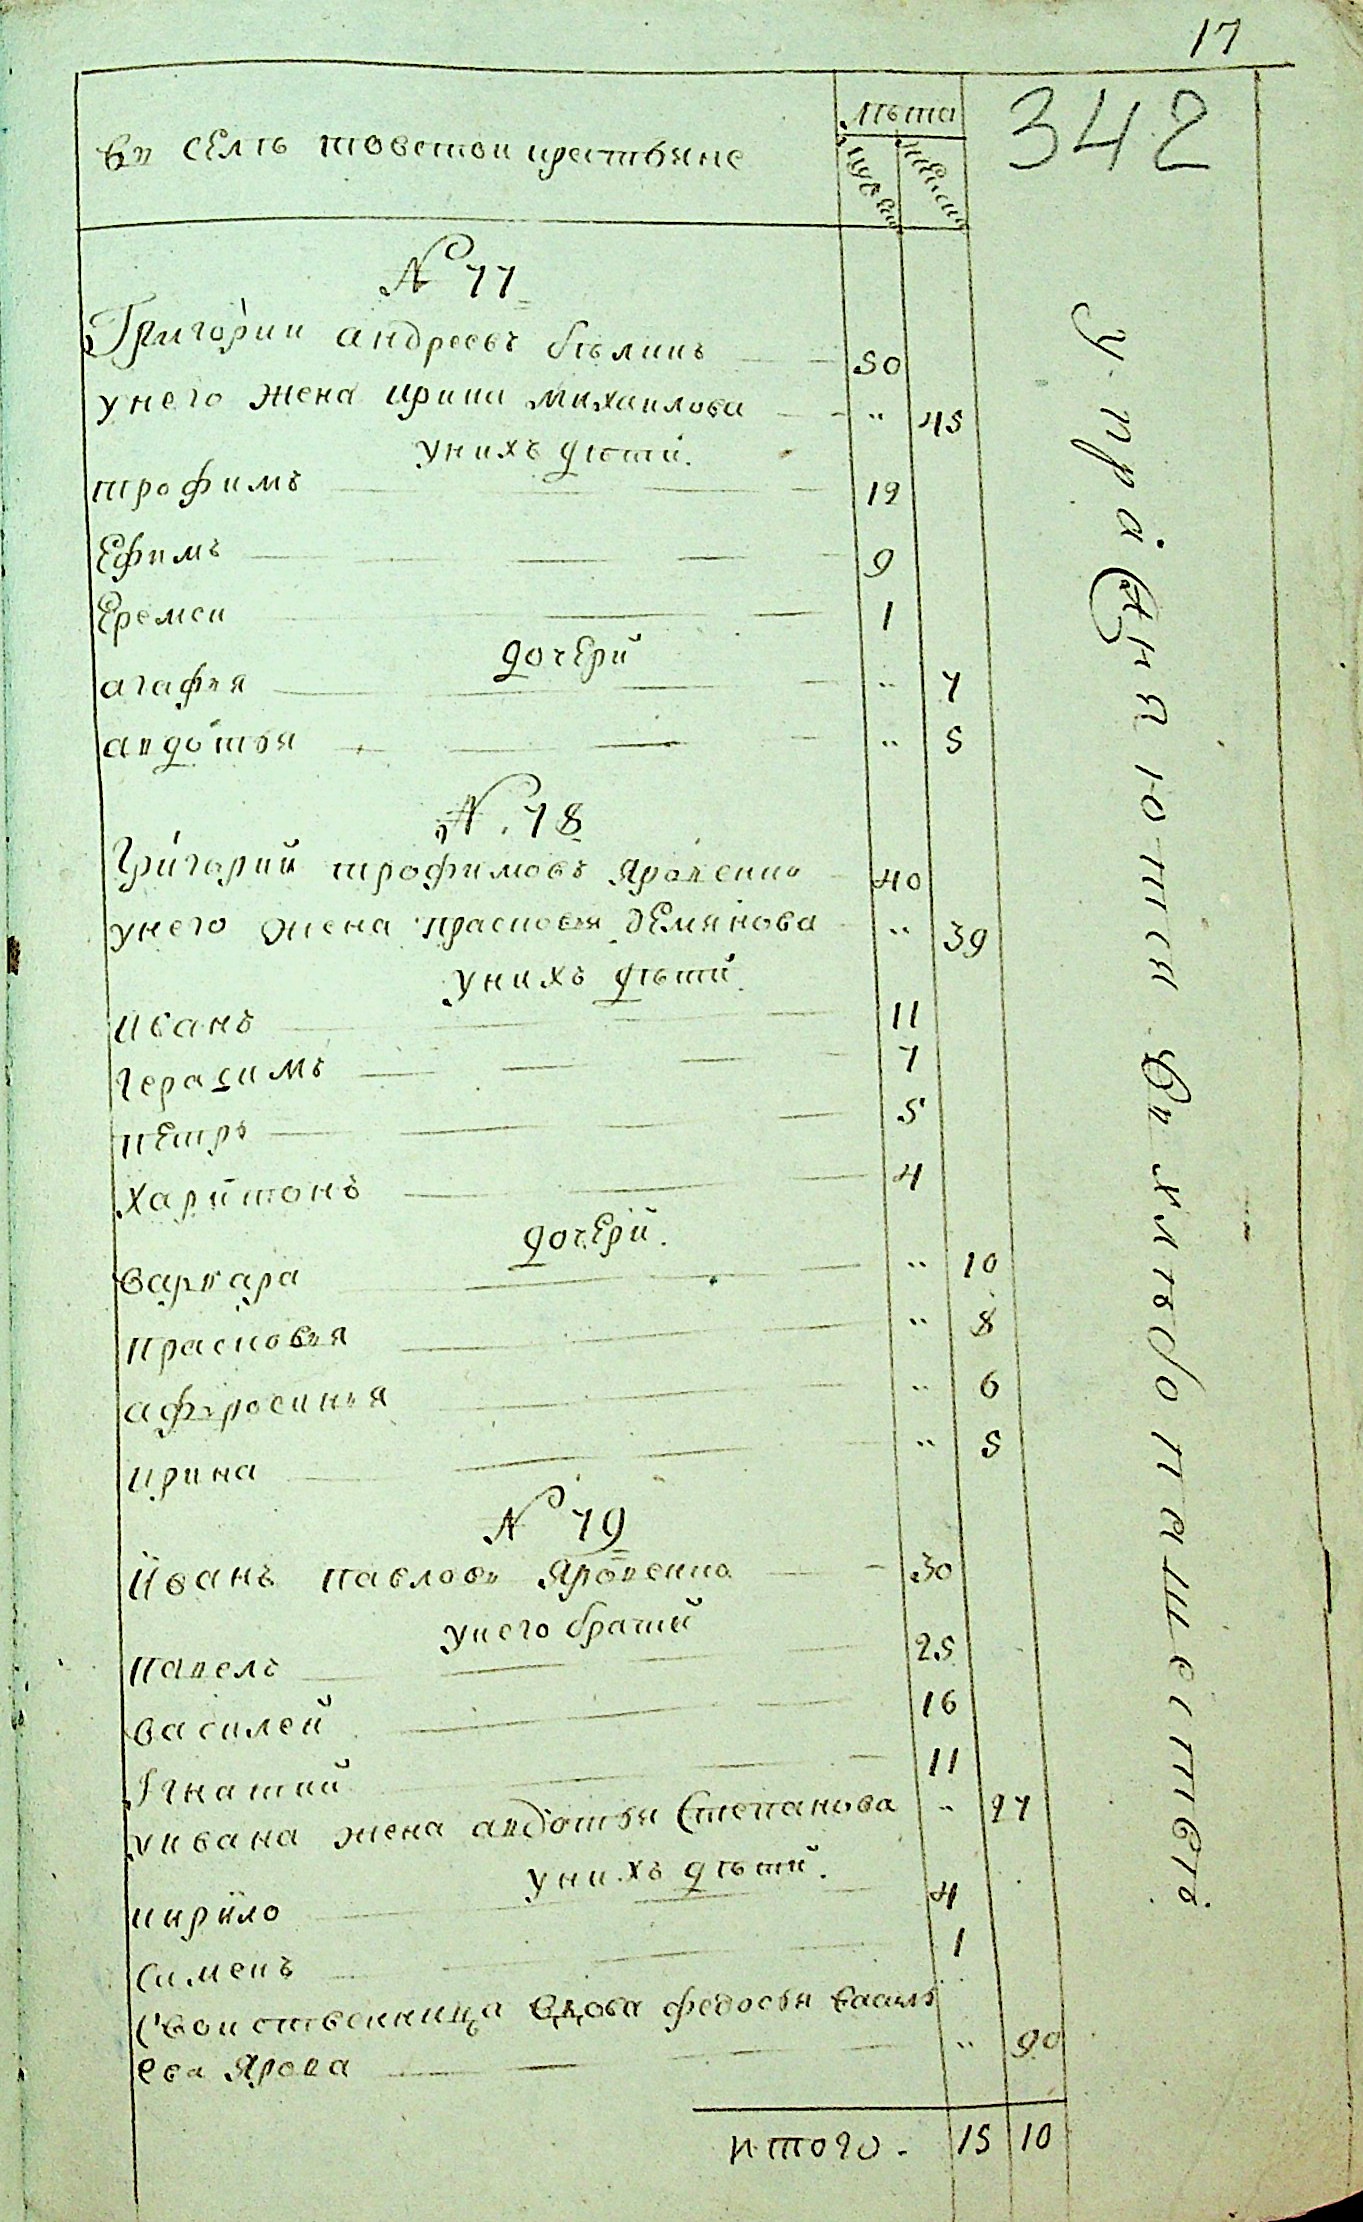 17
342
лѣта
въ селѣ товстом крестьяне
мужеск женска
N 77
Григо́рии андреевъ бѣликъ 50
у него жена ирина михаилова „ 45
у нихъ дѣти.
трофимъ 19
Ефимъ 9
Еремеи 1
дочерй
агафья „ 7
авдотья „ 5
N. 78
Григорий трофимовъ яровенко 40
у него жена прасковья демянова „ 39
у нихъ дѣти.
иванъ 11
герасимъ 7
петръ 5
харйтонъ 4
дочерй.
варвара „ 10
прасковья „ 8
афъросинья „ 6
ирина „ 5
N 79
Йванъ павловъ яровенко 30
у него братьй
павелъ 25
василей 16
Iгнатий 11
у ивана жена авдотья Степанова „ 27
у нихъ дѣтй.
кирйло 4
Сименъ 1
Свойственница вдова федосья василь
ева Ярова „ 90
итого. 15 10
упражняются въ хлѣбопашествѣ